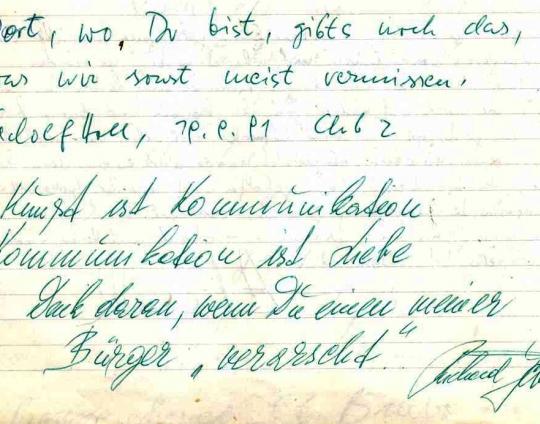 ort, wo Du bist, gibts noch das,
as wir sonst meist vermissen.
dolf Holl, Club 2
Kunst ist Kommunikation
Kommunikation ist Liebe
Denk daran, wenn Du einen meiner
Bürger „verarscht“